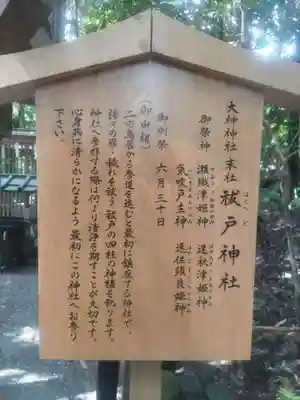 大神神社 末社 祓戸神社
はらえど
御祭神 瀬織津姫神 速秋津姫神
気吹戸主神 速佐須良姫神
御例祭 六月三十日
(御由緒)
二の鳥居から参道を進むと最初に鎮座する神社で、
諸々の罪・穢れを祓う祓戸の四柱の神様を祀ります。
神社へ参拝する際は何より清浄を期すことが大切です。
心身共に清らかになるよう最初にこの神社へお参り
下さい。